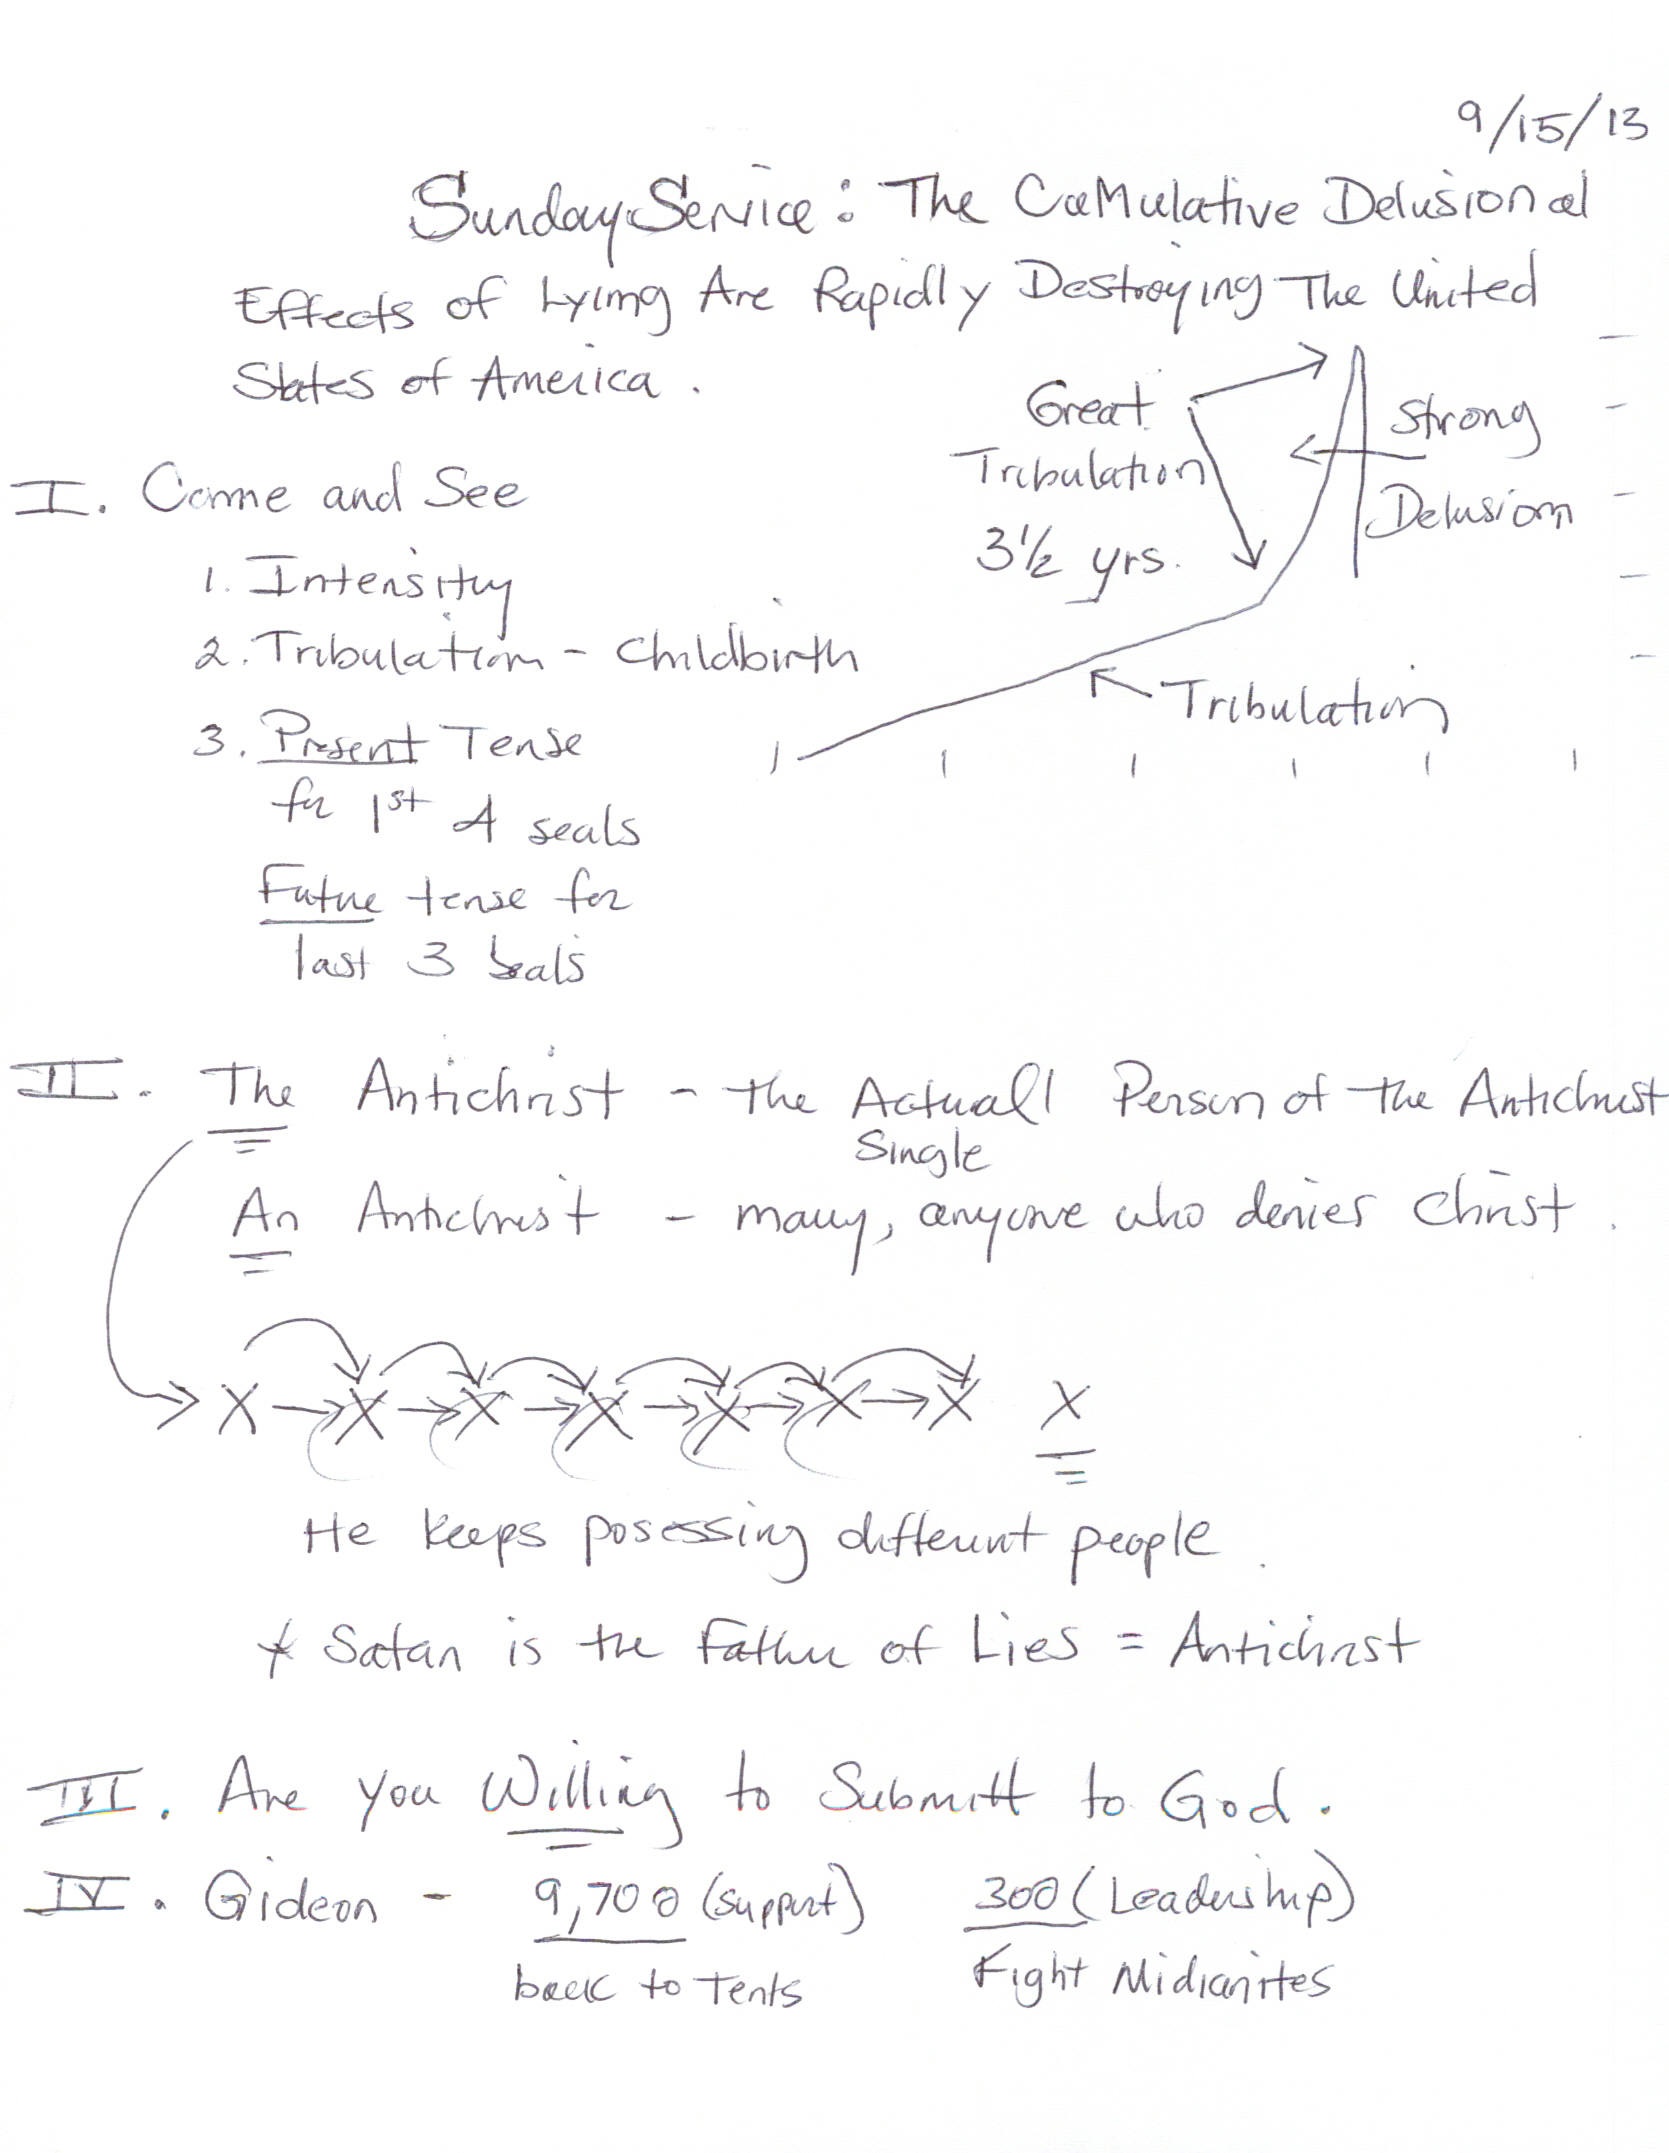 9/15/13
Sunday Service: The CuMulative Delusional
Effects of Lying Are Rapidly Destroying The United
States of America.
Great
Tribulation
3½ yrs.
Strong
Delusion
Tribulation
I. Come and See
1. Intensity
2. Tribulation - Childbirth
3. Present Tense
for 1st 4 seals
Future tense for
last 3 seals
II. The Antichrist - the Actuall Person of the Antichrist
Single
An Antichrist - many, anyone who denies Christ.
X → X → X → X → X → X → X X
He keeps posessing different people.
* Satan is the Father of Lies = Antichrist
III. Are you Willing to Submitt to God.
IV. Gideon - 9,700 (support) 300 (Leadership)
back to Tents Fight Midianites